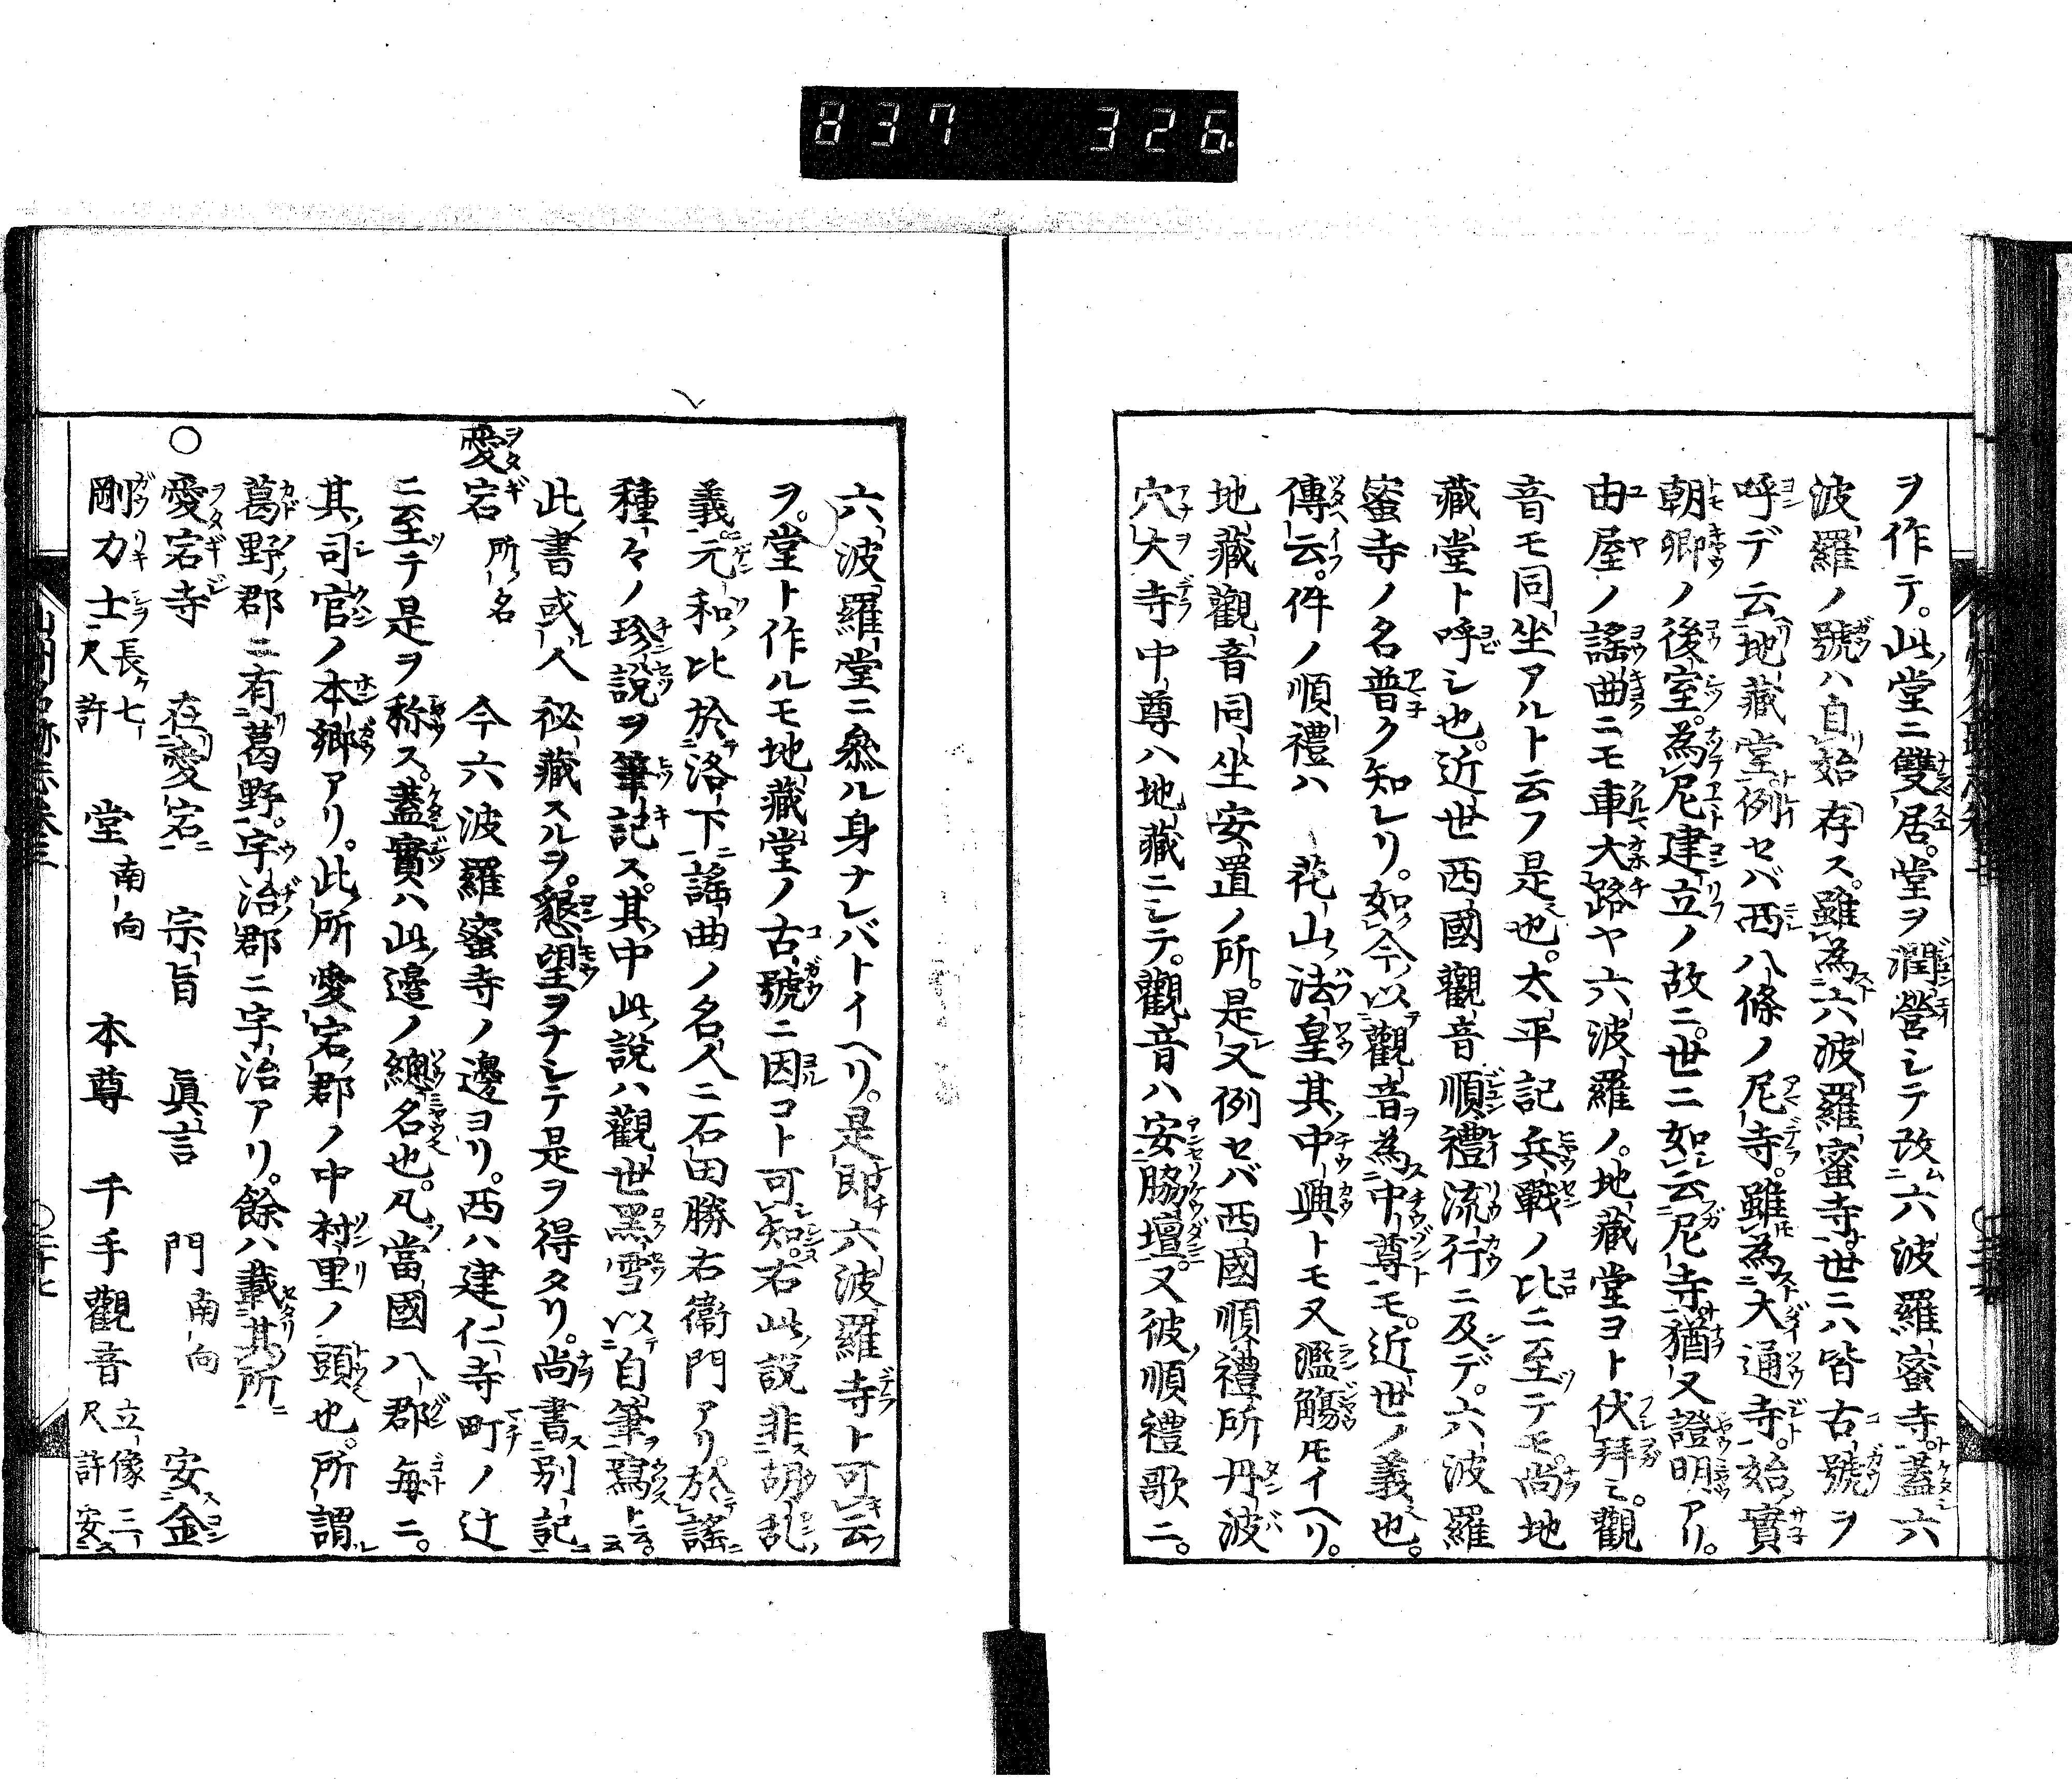 837 326
ヲ作テ。此堂ニ雙居。堂ヲ潤營シテ改六波羅蜜寺。蓋六
波羅ノ號ハ自始存ス。雖為六波羅蜜寺世ニハ皆古號ヲ
呼デ云地藏堂。例セバ西八條ノ尼寺。雖為大通寺。始實
朝卿ノ後室。為尼建立ノ故ニ。世ニ如云尼寺。猶又證明アリ。
由屋ノ謠曲ニモ車大路ヤ六波羅ノ。地藏堂ヨト伏拜ミ。觀
音モ同坐アルト云フ是也。太平記兵戰ノ比ニ至テモ。尚地
藏堂ト呼シ也。近世西國觀音順禮流行ニ及デ。六波羅
蜜寺ノ名普ク知レリ。如今以觀音為中尊モ。近世ノ義也。
傳云。件ノ順禮ハ 花山法皇其中興トモ又濫觴𪜈イヘリ。
地藏觀音同坐安置ノ所。是又例セバ西國順禮所丹波
穴大寺中尊ハ地藏ニシテ。觀音ハ安脇壇。又彼順禮歌ニ。
六波羅堂ニ叅ル身ナレバトイヘリ。是即六波羅寺ト可云
ヲ。堂ト作ルモ地藏堂ノ古號ニ因コト可知。右此説非胡乱
義。元和比於洛下謠曲ノ名人ニ石田勝右衞門アリ。於謠
種々ノ珍説ヲ筆記ス。其中此説ハ觀世黑雪以自筆寫ト云。
此書或人祕藏スルヲ。懇望ヲナシテ是ヲ得タリ。尚書別記
愛宕 所名 今六波羅蜜寺ノ邊ヨリ。西ハ建仁寺町ノ辻
ニ至テ是ヲ称ス。蓋實ハ此邊ノ總名也。凡當國八郡毎ニ。
其司官ノ本郷アリ。此所愛宕郡ノ中村里ノ頭也。所謂
葛野郡ニ有葛野。宇治郡ニ宇治アリ。餘ハ載其所
○愛宕寺 在愛宕 宗旨 眞言 門 南向 安金
剛力士 長七尺許 堂 南向 本尊 千手觀音 立像三尺許安